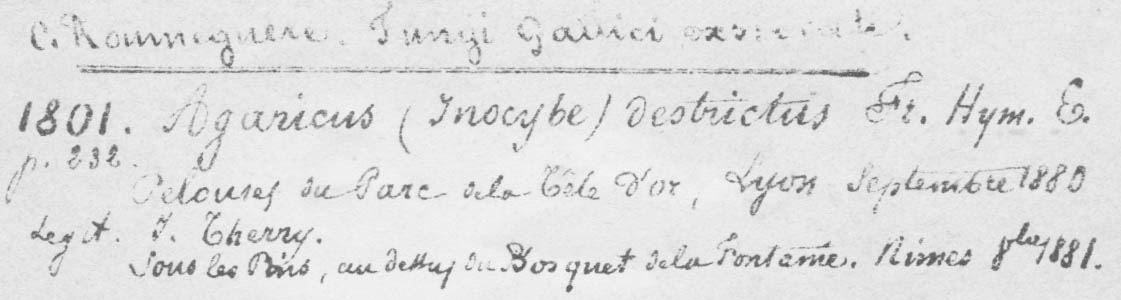 C. Roumeguère. Fungi Gallici exsiccati.
1801. Agaricus (Inocybe) destrictus Fr. Hym. E.
p. 232.
Pelouses du Parc de la Tête d'or, Lyon Septembre 1880
Legit. J. Therry.
Sous les Pins, au dessus du Bosquet de la Fontaine. Nimes 8bre 1881.